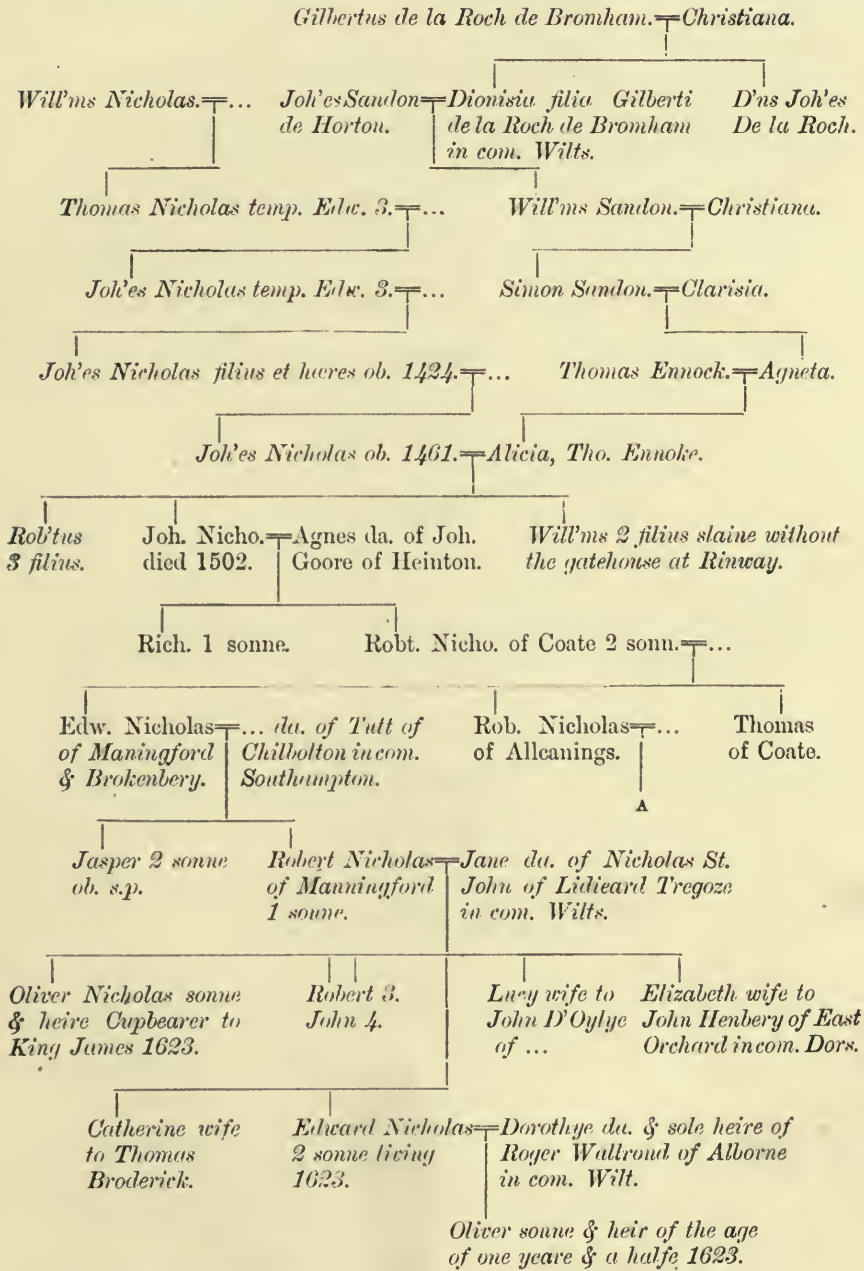 Gilbertus de la Roch de Bromham.=Christiana.
Will'ms Nicholas.=...
Joh'es Sandon=Dionisia filia Gilberti
de Horton.
de la Roch de Bromham
in com. Wilts.
D'ns Joh'es
De la Roch.
Thomas Nicholas temp. Edw. 3.=...
Will'ms Sandon.=Christiana.
Joh'es Nicholas temp. Edw. 3.=...
Simon Sandon.=Clarisia.
Joh'es Nicholas filius et hæres ob. 1424.=...
Thomas Ennock.=Agneta.
Joh'es Nicholas ob. 1461.=Alicia, Tho. Ennoke.
Rob'tus
3 filius.
Joh. Nicho.=Agnes da. of Joh.
died 1502. Goore of Heinton.
Will'ms 2 filius slaine without
the gatehouse at Rinway.
Rich. 1 sonne.
Robt. Nicho. of Coate 2 sonn.=...
Edw. Nicholas=... da. of Tutt of
of Maningford Chilbolton in com.
& Brokenbery. Southampton.
Rob. Nicholas=...
of Allcanings.
A
Thomas
of Coate.
Jasper 2 sonne
ob. s.p.
Robert Nicholas=Jane da. of Nicholas St.
of Manningford John of Lidieard Tregoze
1 sonne. in com. Wilts.
Oliver Nicholas sonne
& heire Cupbearer to
King James 1623.
Robert 3.
John 4.
Lucy wife to
John D'Oylye
of ...
Elizabeth wife to
John Henbery of East
Orchard in com. Dors.
Catherine wife
to Thomas
Broderick.
Edward Nicholas=Dorothye da. & sole heire of
2 sonne living Roger Wallrond of Alborne
1623. in com. Wilt.
Oliver sonne & heir of the age
of one yeare & a halfe 1623.